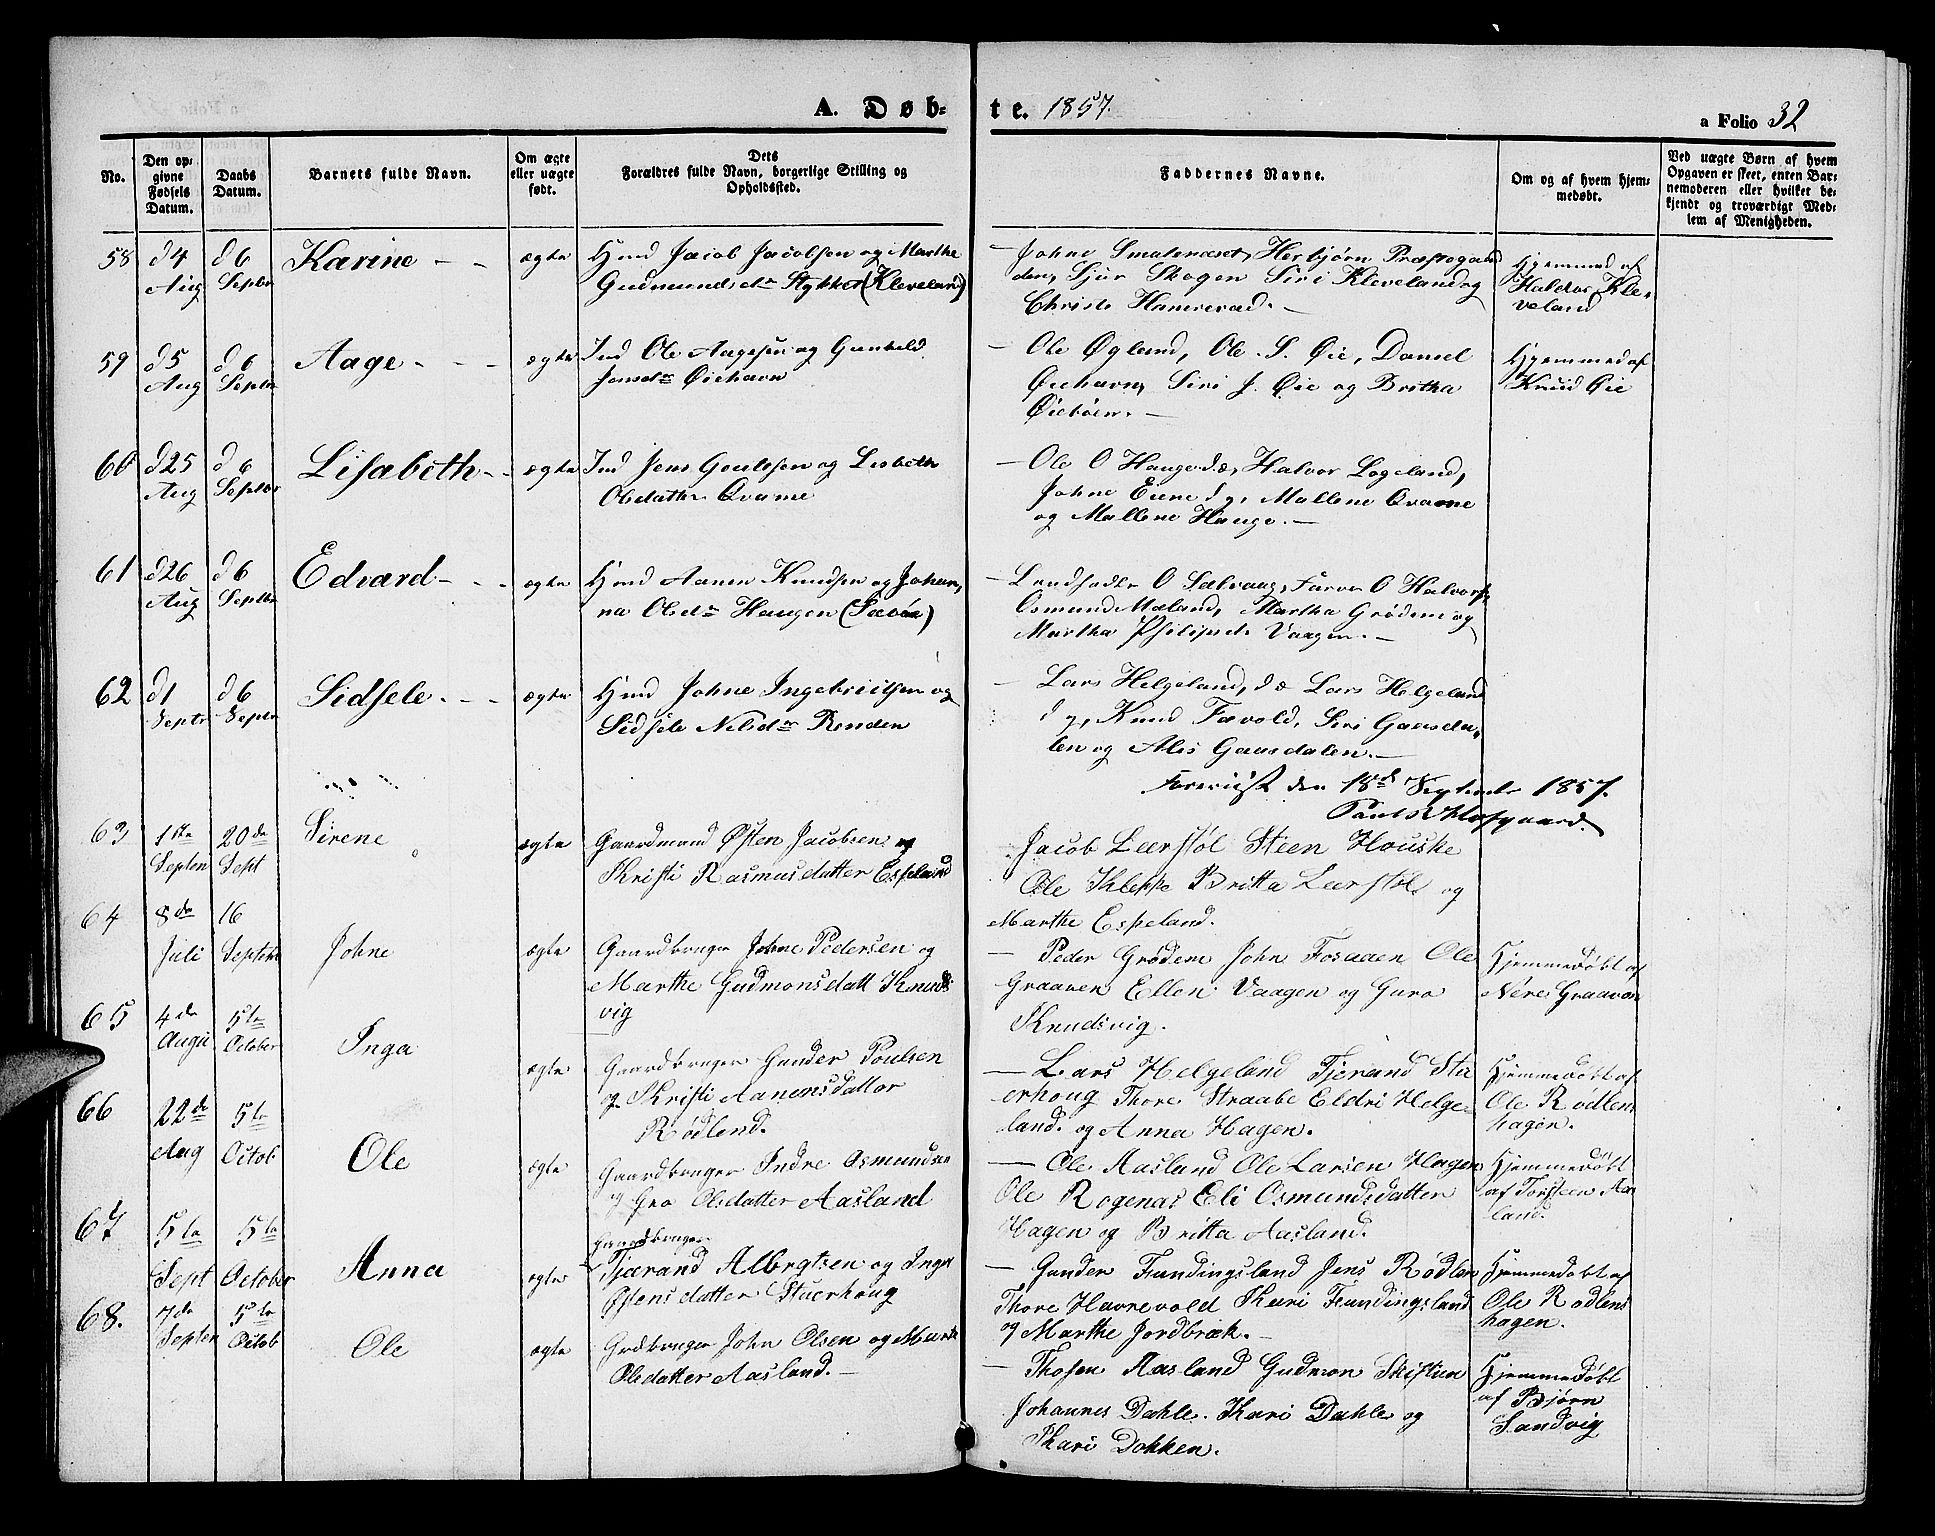 A. Døb-
te. 1857.
a Folio 32
No.
Den op-
givne
Fødsels
Datum.
Daabs
Datum.
Barnets fulde Navn.
Om ægte
eller uægte
født.
Dets
Forældres fulde Navn, borgerlige Stilling og
Opholdssted.
Faddernes Navne.
Om og af hvem hjem-
medøbt.
Ved uægte Børn af hvem
Opgaven er skeet, enten Bar-
nemoderen eller hvilket be-
kjendt og troværdigt Med-
lem af Menigheden.
58 d4 Aug d6 Septbr Karine - - ægte Hmd Jacob Jacobsen og Marthe
Gudmundsdr Stykket (Kleveland)
Johne Smalenæset, Herbjørn
den, Sjur Skogen Siri Kleveland og
Christi
Hjemmed af
Haldor Kle-
veland
59 d5 Aug d6 Septbr Aage - - - ægte Ind Ole Aagesen og Gunhild
Jensdr Øiehavn
- Ole Øgland, Ole S. Øie, Daniel
Øiehavn, Siri J. Øie og Britha
Øiebøen. -
Hjemmed af
Knud Øie
60 d25 Aug d6 Septbr Lisabeth - - ægte Ind Jens Goutesen og Lisbeth
Olsdatter Qvame
- Ole O Hauge d.æ, Halvor Logeland,
Johne Eiene d y, Mallene Qvame
og Mallene Hauge. -
61 d26 Aug d6 Septbr Edvard - - - ægte Hmd Aanen Knudsen og Johan-
na Olsdr Haugen (Sævøe)
- O Sælvaag, Farver O Halvors.
Osmund Mæland, Martha Grødeme og
Martha Philipsd. Vaagen. -
62 d1 Septr d6 Septr Sidsele - - - ægte Hmd Johne Ingebreitsen og
Sidsele Nilsdr Renden
- Lars Helgeland, d æ Lars Helgeland
d y, Knud Fævold, Siri Gaasda-
len og Alis Gaasdalen. -
Forevist den 18de September 1857.
63 1ste Septen 20de Sept Sirene ægte Gaardmand Østen Jacobsen og
Kristi Rasmusdatter Espeland
Jacob Leerstøl Steen Houske
Ole Kleppe Britta Leerstøl og
Marthe Espeland.
64 8de Juli 16 Septbr Johne ægte Gaardbruger Johne Pedersen og
Marthe Gudmonsdatt Knuds
vig
- Peder Grødem John Fosaaen Ole
Graaven Ellen Vaagen og Guro
Knudsvig.
Hjemmedøbt af
Nere Graaven
65 4de Augu 5te October Inga ægte Gaardbruger Gunder Poulsen
og Kristi Aanensdatter
Rødlend.
- Lars Helgeland Tjerand Stu
erhoug Thore Straabe Eldri Helge-
land. og Anna Hagen.
Hjemmedøbt af
Ole Rødlens
hagen.
66 22de Aug 5te Octob Ole ægte Gaardbruger Indre Osmundsen
og Gro Olsdatter Aasland
- Ole Aasland Ole Larsen Hagen
Ole Rogenas Eli Osmundsdatter
Hagen og Britta Aasland.
Hjemmedøbt
af Torsteen Aas
land.
67 5te Sept 5te October Anna ægte Gaardbruger
Tjærand Albregtsen og Inger
Østensdatter Stuerhoug
- Gunder Fundingsland Jens Rødlen
Thore Havrevold Kari Fundingsland
og Marthe Jordbræk. -
Hjemmedøbt af
Ole Rødlens
hagen.
68. 7de Septen 5te Octob Ole ægte Grdbruger John Olsen og Marte
Olsdatter Aasland. -
- Aasland Gudmon
Johannes Dahle. Kari Dahle og
Kari Dokken.
Hjemmedøbt
af Bjørn
Sandvig